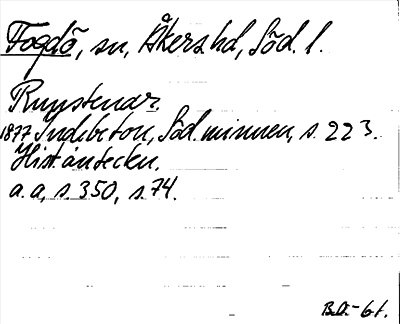 Fogdö, sn, Åkers hd, Söd. l.
Runstenar.
1877 Indebetou, Söd. minnen, s. 223.
Hist. anteckn.
a. a, s 350, s. 74.
B.O. - 61.